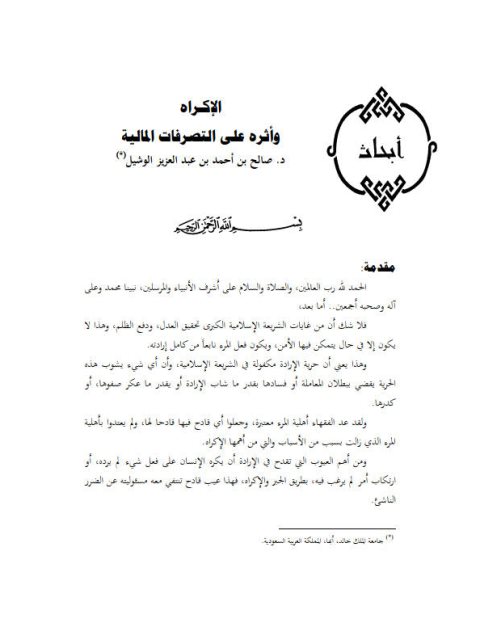 أبحاث
الإكراه
وأثره على التصرفات المالية
د. صالح بن أحمد بن عبد العزيز الوشيل(*)
بسم الله الرحمن الرحيم
مقدمة:
الحمد لله رب العالمين، والصلاة والسلام على أشرف الأنبياء والمرسلين، نبينا محمد وعلى
آله وصحبه أجمعين.. أما بعد،
فلا شك أن من غايات الشريعة الإسلامية الكبرى تحقيق العدل، ودفع الظلم، وهذا لا
يكون إلا في حال يتمكن فيها الأمن، ويكون فعل المرء نابعاً من كامل إرادته.
وهذا يعني أن حرية الإرادة مكفولة في الشريعة الإسلامية، وأن أي شيء يشوب هذه
الحرية يقضي ببطلان المعاملة أو فسادها بقدر ما شاب الإرادة أو يقدر ما عكر صفوها، أو
كدرها.
ولقد عد الفقهاء أهلية المرء معتبرة، وجعلوا أي قادح فيها قادحا لها، ولم يعتدوا بأهلية
المرء الذي زالت بسبب من الأسباب والتي من أهمها الإكراه.
ومن أهم العيوب التي تقدح في الإرادة أن يكره الإنسان على فعل شيء لم يرده، أو
ارتكاب أمر لم يرغب فيه، بطريق الجبر والإكراه، فهذا عيب قادح تنتفي معه مسؤوليته عن الضرر
الناشئ.
(*) جامعة الملك خالد، أبها، المملكة العربية السعودية.